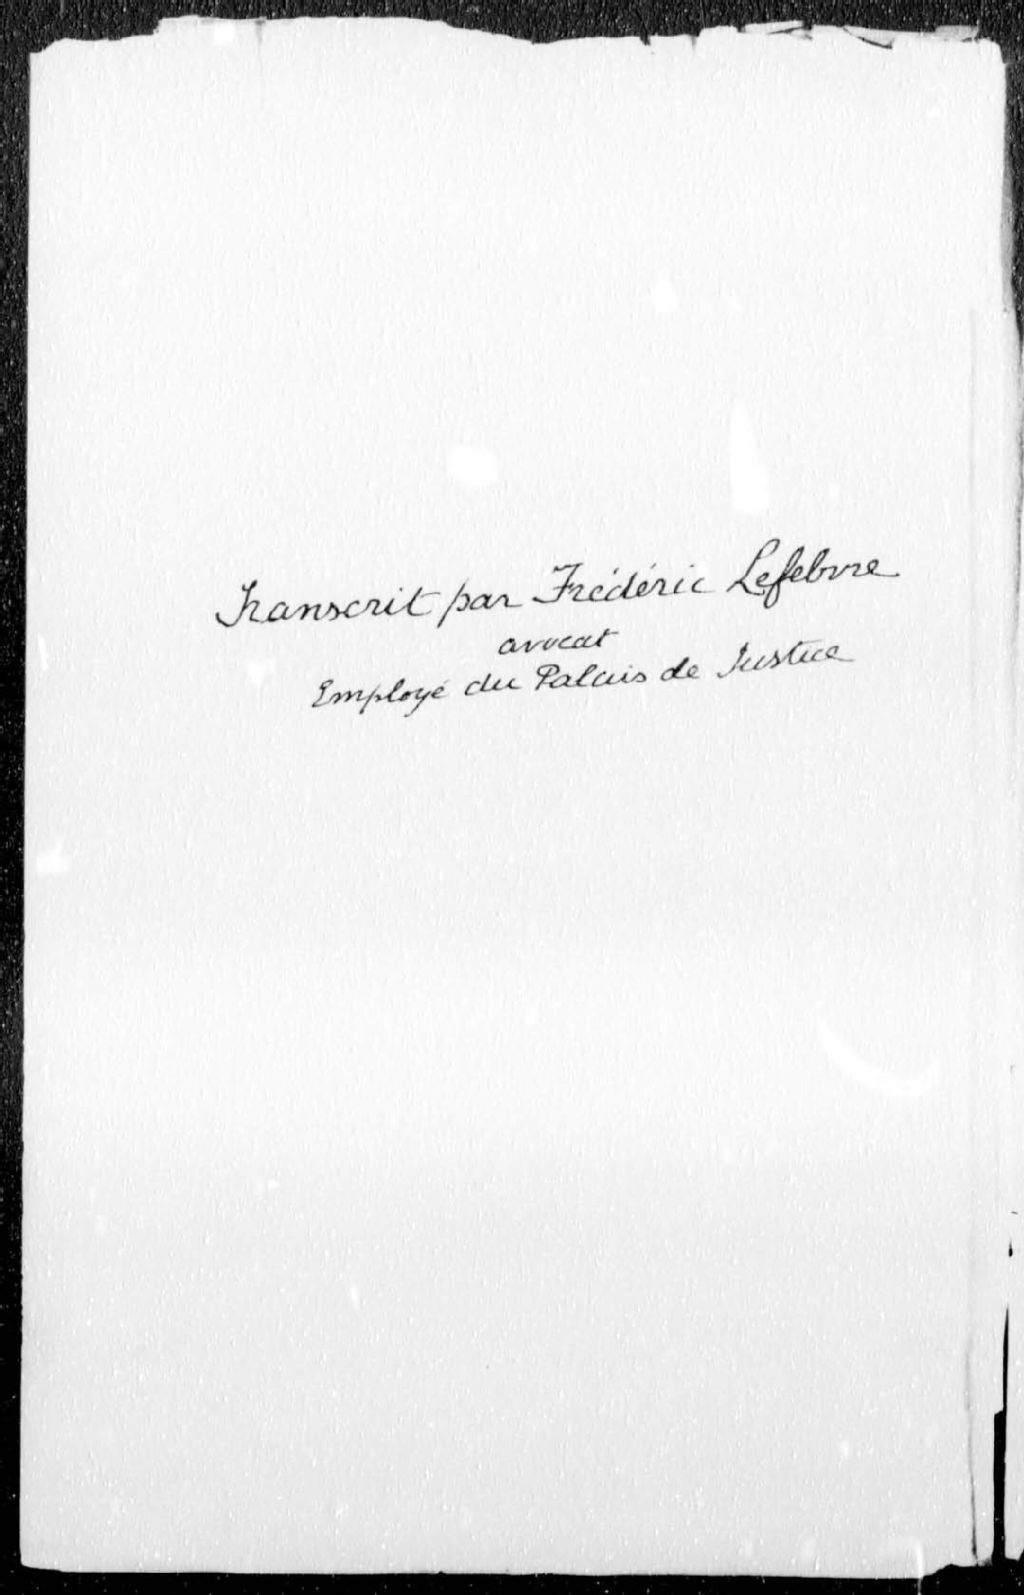 Transcrit par Frédéric Lefebvre
avocat
Employé du Palais de Justice